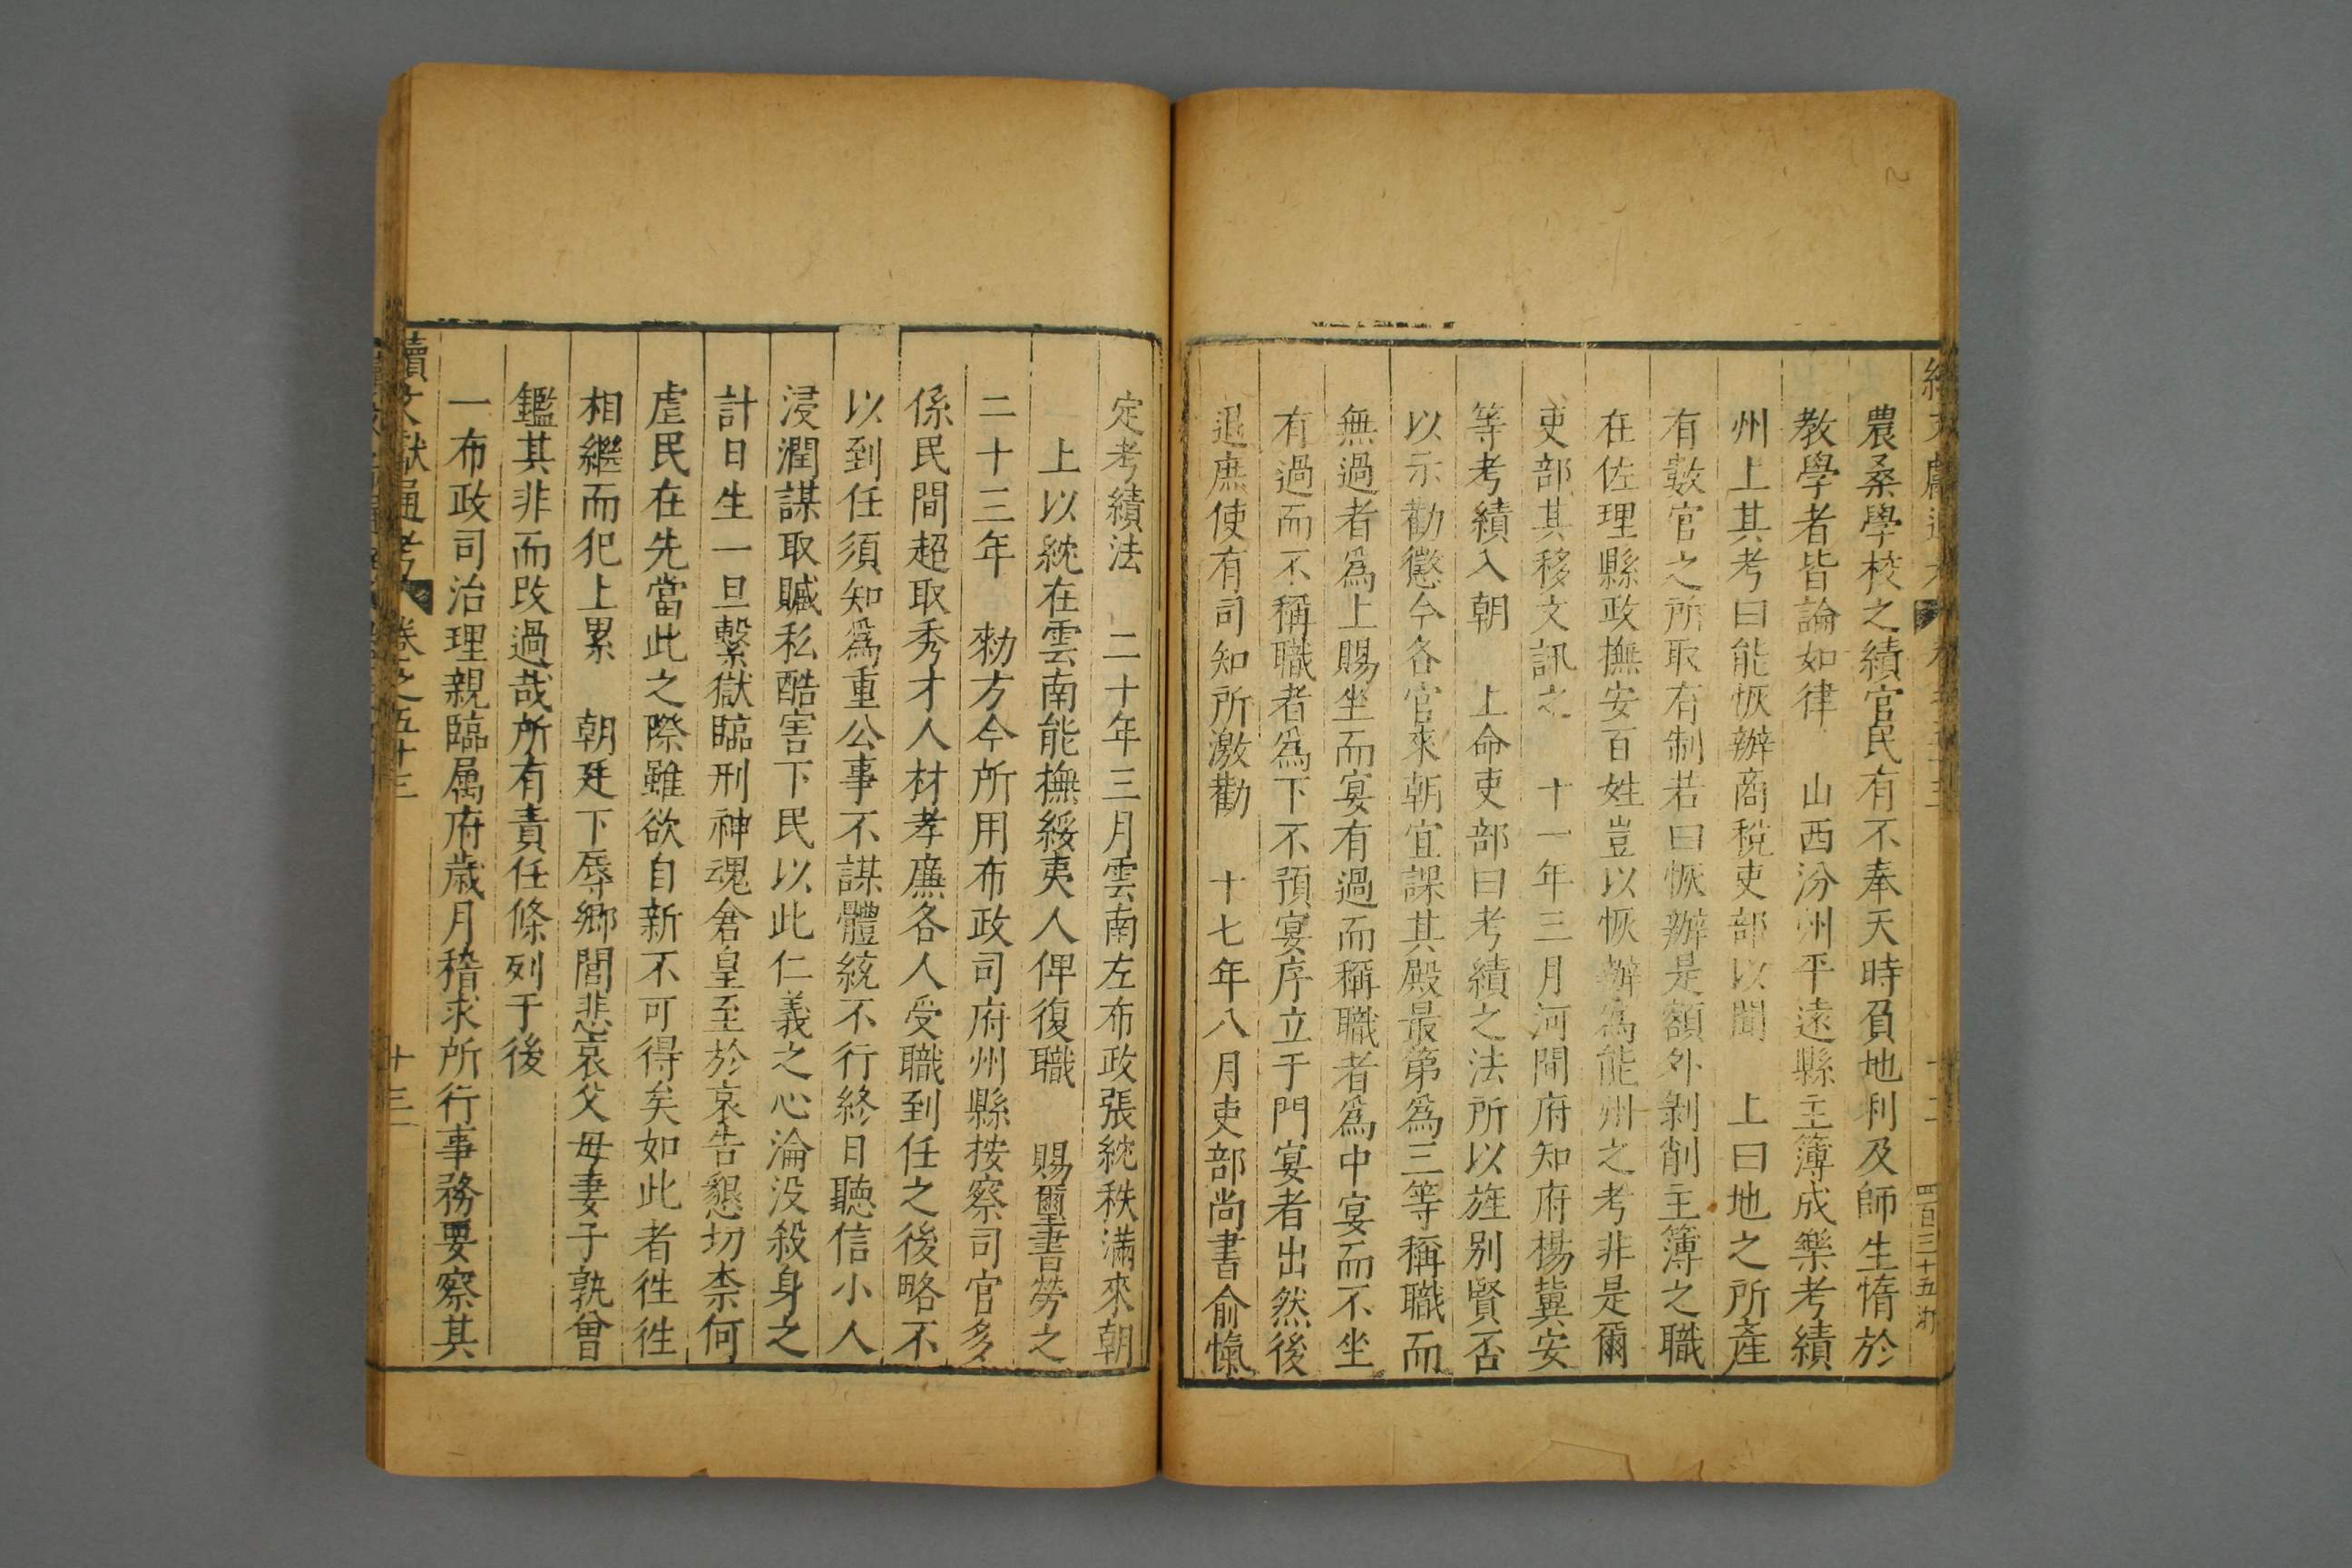 農桑學校之績官民有不奉天時負地利及師生惰於
教學者皆論如律　山西汾州平遠縣主簿成樂考績
州上其考曰能恢辦商稅吏部以聞　上曰地之所產
有數官之所取有制若曰恢辦是額外剝削主簿之職
在佐理縣政撫安百姓豈以恢辦爲能州之考非是爾
吏部其移文訊之　十一年三月河間府知府楊冀安
等考績入朝　上命吏部曰考績之法所以旌別賢否
以示勸懲今各官來朝宜課其殿最第爲三等稱職而
無過者爲上賜坐而宴有過而稱職者爲中宴而不坐
有過而不稱職者爲下不預宴序立于門宴者出然後
退庶使有司知所激勸　十七年八月吏部尚書俞愾
定考績法　二十年三月雲南左布政張紞秩滿來朝
上以紞在雲南能撫綏夷人俾復職　賜璽書勞之
二十三年　勑方今所用布政司府州縣按察司官多
係民間超取秀才人材孝廉各人受職到任之後略不
以到任須知爲重公事不謀體統不行終日聽信小人
浸潤謀取贓私酷害下民以此仁義之心淪没殺身之
計日生一旦繫獄臨刑神魂倉皇至於哀告懇切柰何
虐民在先當此之際雖欲自新不可得矣如此者徃徃
相繼而犯上累　朝廷下辱鄉閭悲哀父母妻子孰曾
鑑其非而改過哉所有責任條列于後
一布政司治理親臨属府歲月稽求所行事務要察其
續文獻通考　卷之五十三　十三
四百三十五